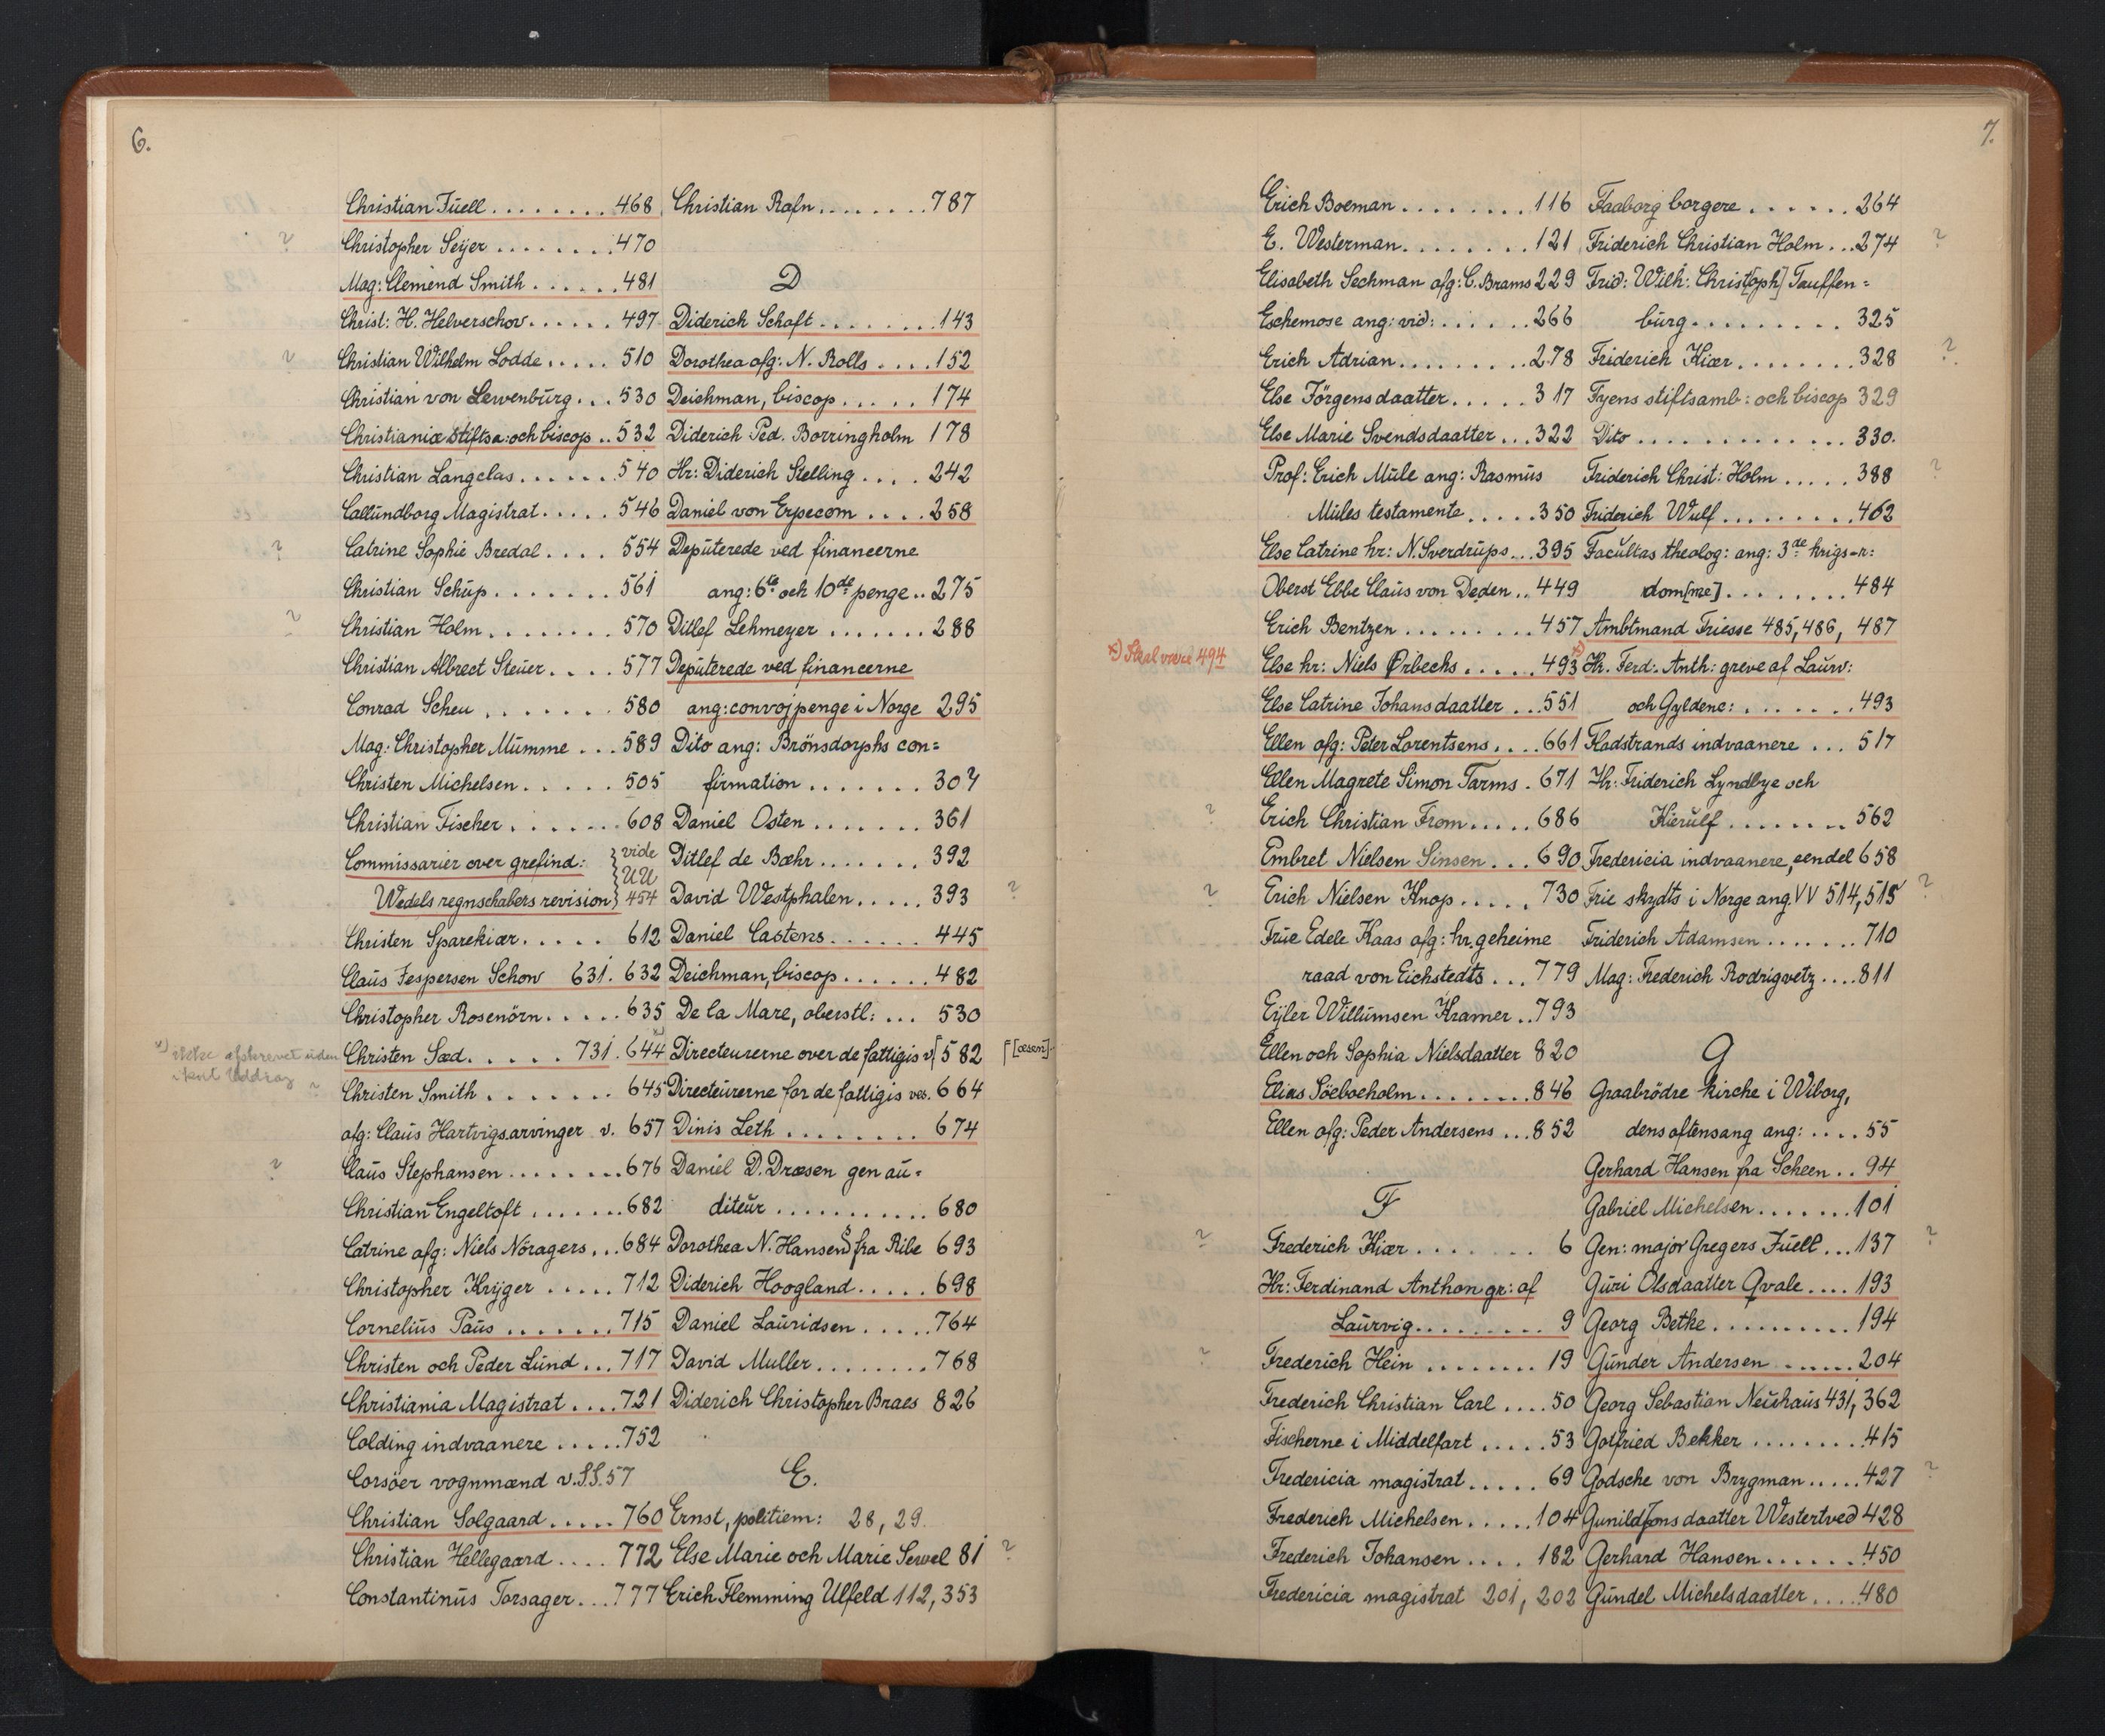 6.
Christian Juell . . . . . . . . 468
? Christopher Seijer . . . . . . . 470
Mag: Clemend Smith . . . . . . 481
Christ: H. Helverschov . . . . . . 497
? Christian Wilhelm Lodde . . . . . 510
Christian von Lewenburg . . . 530
Christianiæ stiftsa: och biscop . . 532
Christian Langclas . . . . . . 540
Callundborg Magistrat . . . . . 546
? Catrine Sophie Bredal . . . . 554
Christian Schup . . . . . . . 561
? Christian Holm . . . . . . . . 570
Christian Albrect Steuer . . . . 577
Conrad Scheu . . . . . . . 580
Mag: Christopher Mumme . . . 589
Christen Michelsen . . . . . 505
Christian Fischer . . . . . . . 608
Commissarier over grefind: } vide
Wedels regnschabers revision } UU 454
Christen Sparekiær . . . . . 612
Claus Jespersen Schow 631. 632
Christopher Rosenörn . . . . . 635
*) ikke afskrevet uden
Christen Sæd . . . . . 731. 644 *)
Christen Smith . . . . . . . 645
afg: Claus Hartvigs arvinger v. 657
? Claus Stephansen . . . . . . . . 676
Christian Engeltoft . . . . . . . 682
Catrine afg: Niels Nöragers . . . 684
Christopher Krÿger . . . . . 712
Cornelius Paus . . . . . . . 715
Christen och Peder Lund . . . 717
Christiania Magistrat . . . . 721
Colding indvaanere . . . . . 752
Corsöer vognmænd v. S.S. 57
Christian Solgaard . . . . . 760
Christian Hellegaard . . . . 772
Constantinus Torsager . . . 777
Christian Rafn . . . . . . . . 787
D
Diderich Schaft . . . . . . . . 143
Dorothea afg: N. Rolls . . . . 152
Deichman, biscop . . . . . 174
Diderich Ped. Borringholm 178
Hr: Diderich Stelling . . . . 242
Daniel von Erpecom . . . . 258
Deputerede ved financerne
ang: 6te och 10de penge . . 275
Ditlef Lehmeyer . . . . . . . 288
Deputerede ved financerne
ang: convojpenge i Norge 295
Dito ang: Brönsdorphs con=
firmation . . . . . . . 307
Daniel Osten . . . . . . . 361
Ditlef de Bæhr . . . . . . . 392
David Westphalen . . . . . 393 ?
Daniel Castens . . . . . . 445
Deichman, biscop . . . . . . 482
De la Mare, oberstl: . . . 530
Directeurerne over de fattigis v[ 582 [[æsen].
Directeurerne for de fattigis ves. 664
Dinis Leth . . . . . . . . 674
Daniel D. Dræsen gen au=
diteur . . . . . . . . . . . 680
Dorothea N. Hansens fra Ribe 693
Diderich Hoogland . . . . . 698
Daniel Lauridsen . . . . . 764
David Muller . . . . . . . . 768
Diderich Christopher Braes 826
E.
Ernst, politiem: 28, 29.
Else Marie och Marie Sewel 81 ?
Erich Flemming Ulfeld 112, 353
7.
Erich Boeman . . . . . . . . 116
E. Westerman . . . . . . . . 121
Elisabeth Sechman afg: C. Brams 229
Eschemose ang: vid: . . . . . . 266
Erich Adrian . . . . . . . . . 278
Else Jörgensdaatter . . . . . 317
Else Marie Svendsdaatter . . . 322
Prof: Erich Mule ang: Rasmus
Mules testamente . . . . . 350
Else Catrine hr: N. Sverdrups . . . 395
Oberst Ebbe Claus von Deden . . 449
Erich Bentzen . . . . . . . . . 457
*) Skal være 494
Else hr: Niels Ørbechs . . . . . 493 *)
Else Catrine Johansdaatter . . . 551
Ellen afg: Peter Lorentsens . . . . 661
Ellen Magrete Simon Tarms . 671
? Erich Christian From . . . . . 686
Embret Nielsen Sinsen . . . 690
? Erich Nielsen Knop . . . . . 730
Frue Edele Kaas afg: hr. geheime
raad von Eichstedts . . . 779
Eÿler Willumsen Kramer . . 793
Ellen och Sophia Nielsdaatter 820
Elias Söeboeholm . . . . . . . . 846
Ellen afg: Peder Andersens . . . 852
F
? Frederich Kiær . . . . . . . 6
Hr: Ferdinand Anthon gr: af
Laurvig . . . . . . . . . 9
? Frederich Hein . . . . . . . . 19
Frederich Christian Carl . . . . 50
Fischerne i Middelfart . . . . . 53
Fredericia magistrat . . . . . 69
Frederich Michelsen . . . . . . 104
Frederich Johansen . . . . 182
Fredericia magistrat 201, 202
Faaborg borgere . . . . . . 264
Friderich Christian Holm . . . 274 ?
Frid: Wilh: Christ[oph] Tauffen=
burg . . . . . . . . . 325
Friderich Kiær . . . . . . . . 328 ?
Fyens stiftsamb: och biscop 329
Dito . . . . . . . . . . . . . 330.
Friderich Christ: Holm . . . . . 388 ?
Friderich Wulf . . . . . . . . . 462
Facultas theolog: ang: 3de krigs-r:
dom[me] . . . . . . . . . 484
Ambtmand Friesse 485, 486, 487
Hr. Ferd: Anth: greve af Laurv:
och Gyldene: . . . . . . . 493
Fladstrands indvaanere . . . 517
Hr: Friderich Lyndbye och
Kierulf . . . . . . . . 562
Fredericia indvaanere, eendel 658
Frie skydts i Norge ang. VV 514, 515 ?
Friderich Adamsen . . . . . . . 710
Mag: Frederich Rodrigvetz . . . . 811
G
Graabrödre kirche i Wiborg,
dens aftensang ang: . . . . 55
Gerhard Hansen fra Scheen . . 94
Gabriel Michelsen . . . . . . . 101
Gen: major Gregers Juell . . . 137 ?
Guri Olsdaatter Qvale . . . . 193
Georg Betke . . . . . . . . . . 194
Gunder Andersen . . . . . . 204
Georg Sebastian Neuhaus 431, 362
Gotfried Bekker . . . . . . . . 415
Godsche von Brygman . . . . . 427 ?
Gunild Jonsdaatter Westertved 428
Gerhard Hansen . . . . . . 450
Gundel Michelsdaatter . . . . 480